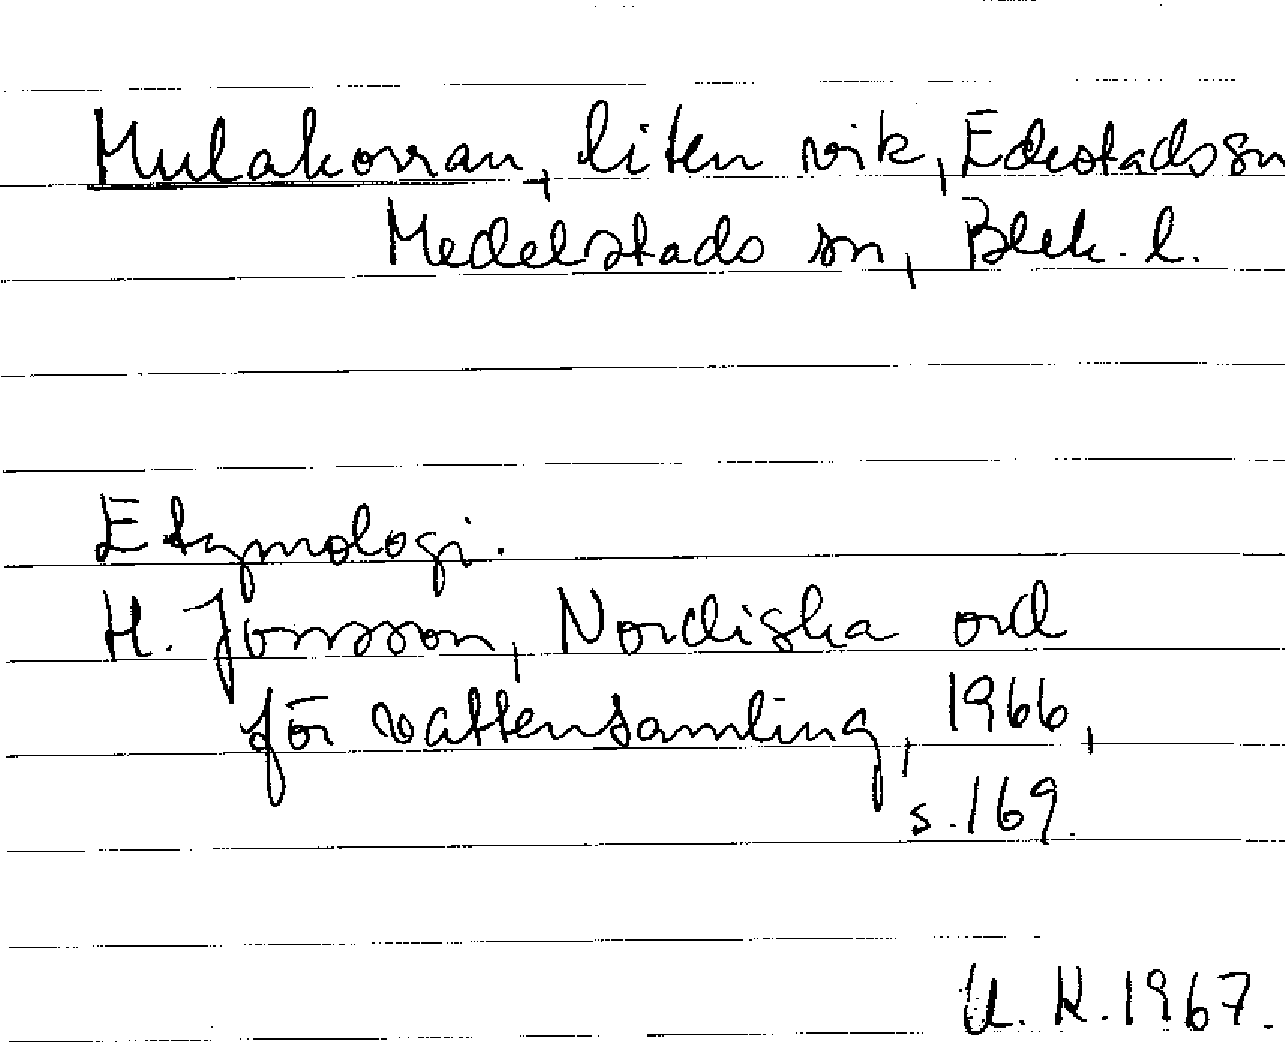 Mulakorran, liten vik, Edestads sn
Medelstads sn, Blek. l.
Etymologi.
H. Jonsson, Nordiska ord
för vattensamling, 1966,
s. 169.
U. K. 1967.